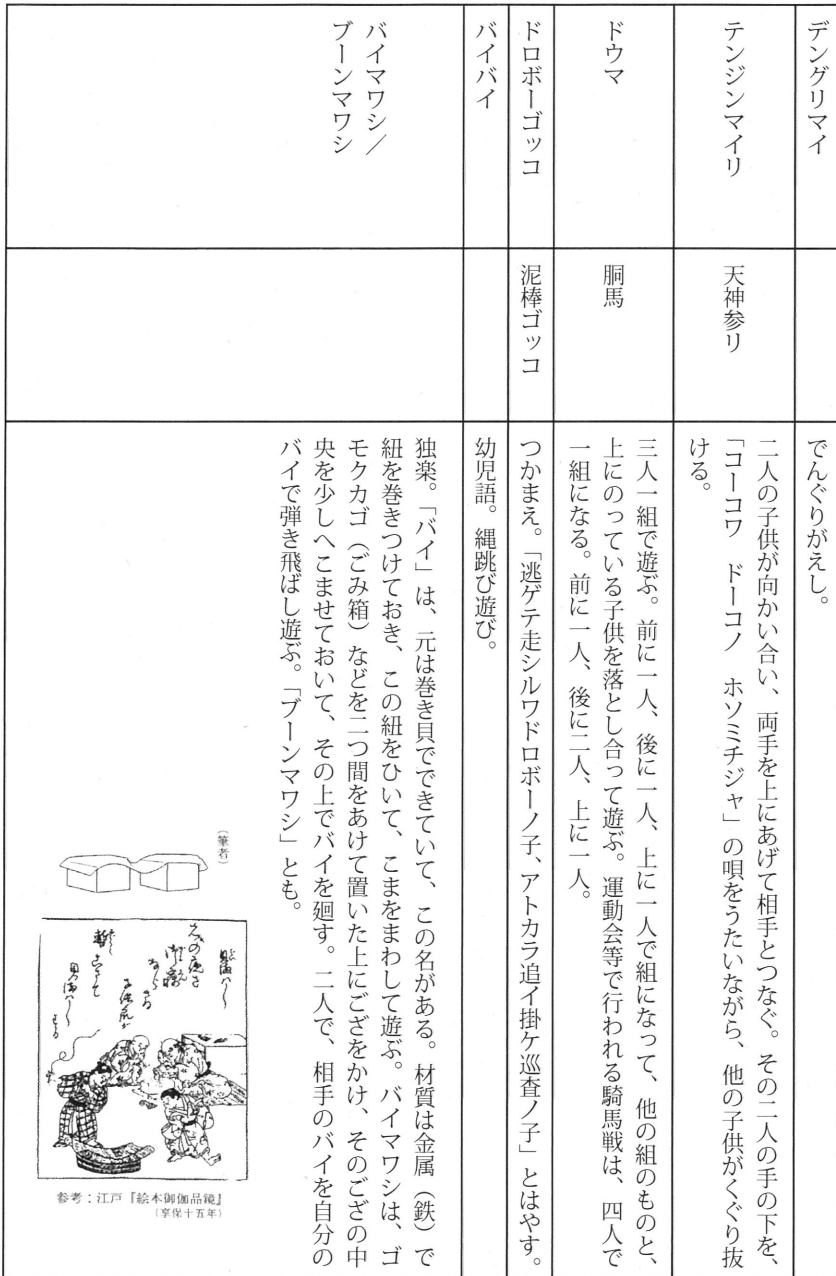 デングリマイ
でんぐりがえし。
テンジンマイリ
天神参リ
二人の子供が向かい合い、両手を上にあげて相手とつなぐ。その二人の手の下を、
「コーコワ　ドーコノ　ホソミチジャ」の唄をうたいながら、他の子供がくぐり抜
ける。
ドウマ
胴馬
三人一組で遊ぶ。前に一人、後に一人、上に一人で組になって、他の組のものと、
上にのっている子供を落とし合って遊ぶ。運動会等で行われる騎馬戦は、四人で
一組になる。前に一人、後に二人、上に一人。
ドロボーゴッコ
泥棒ゴッコ
つかまえ。「逃ゲテ走シルワドロボーノ子、アトカラ追イ掛ケ巡査ノ子」とはやす。
バイバイ
幼児語。縄跳び遊び。
バイマワシ／
ブーンマワシ
独楽。「バイ」は、元は巻き貝でできていて、この名がある。材質は金属（鉄）で
紐を巻きつけておき、この紐をひいて、こまをまわして遊ぶ。バイマワシは、ゴ
モクカゴ（ごみ箱）などを二つ間をあけて置いた上にござをかけ、そのござの中
央を少しへこませておいて、その上でバイを廻す。二人で、相手のバイを自分の
バイで弾き飛ばし遊ぶ。「ブーンマワシ」とも。
（筆者）
参考：江戸『絵本御伽品鏡』
（享保十五年）